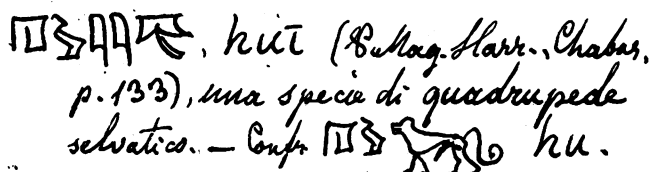 𓉔𓅱𓇋𓇋𓄛, huī (P. Mag. Harr., Chabas,
p. 133), una specie di quadrupede
selvatico. — Confr. 𓉔𓅱 hu.